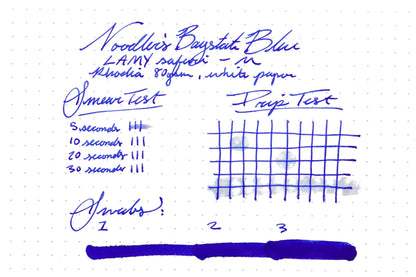 Noodler's Baystate Blue
LAMY safari - M
Rhodia 80gsm, white paper
Smear Test
Drip Test
5 seconds III
10 seconds III
20 seconds III
30 seconds III
Swabs:
1 2 3